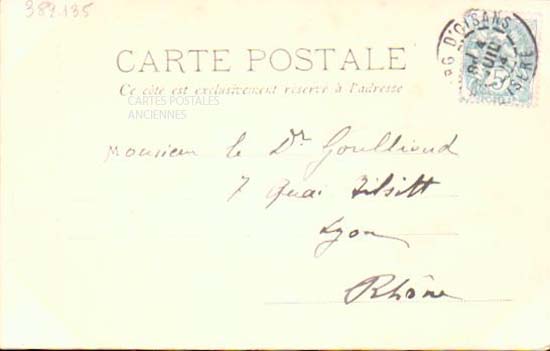 389135
CARTE POSTALE
Ce côté est exclusivement réservé à l'adresse
CARTES POSTALES
ANCIENNES
BG D'OISANS
ISÈRE
4
JUIL
5
Monsieur le Dr Goullioud
7 Quai Tilsitt
Lyon
Rhône